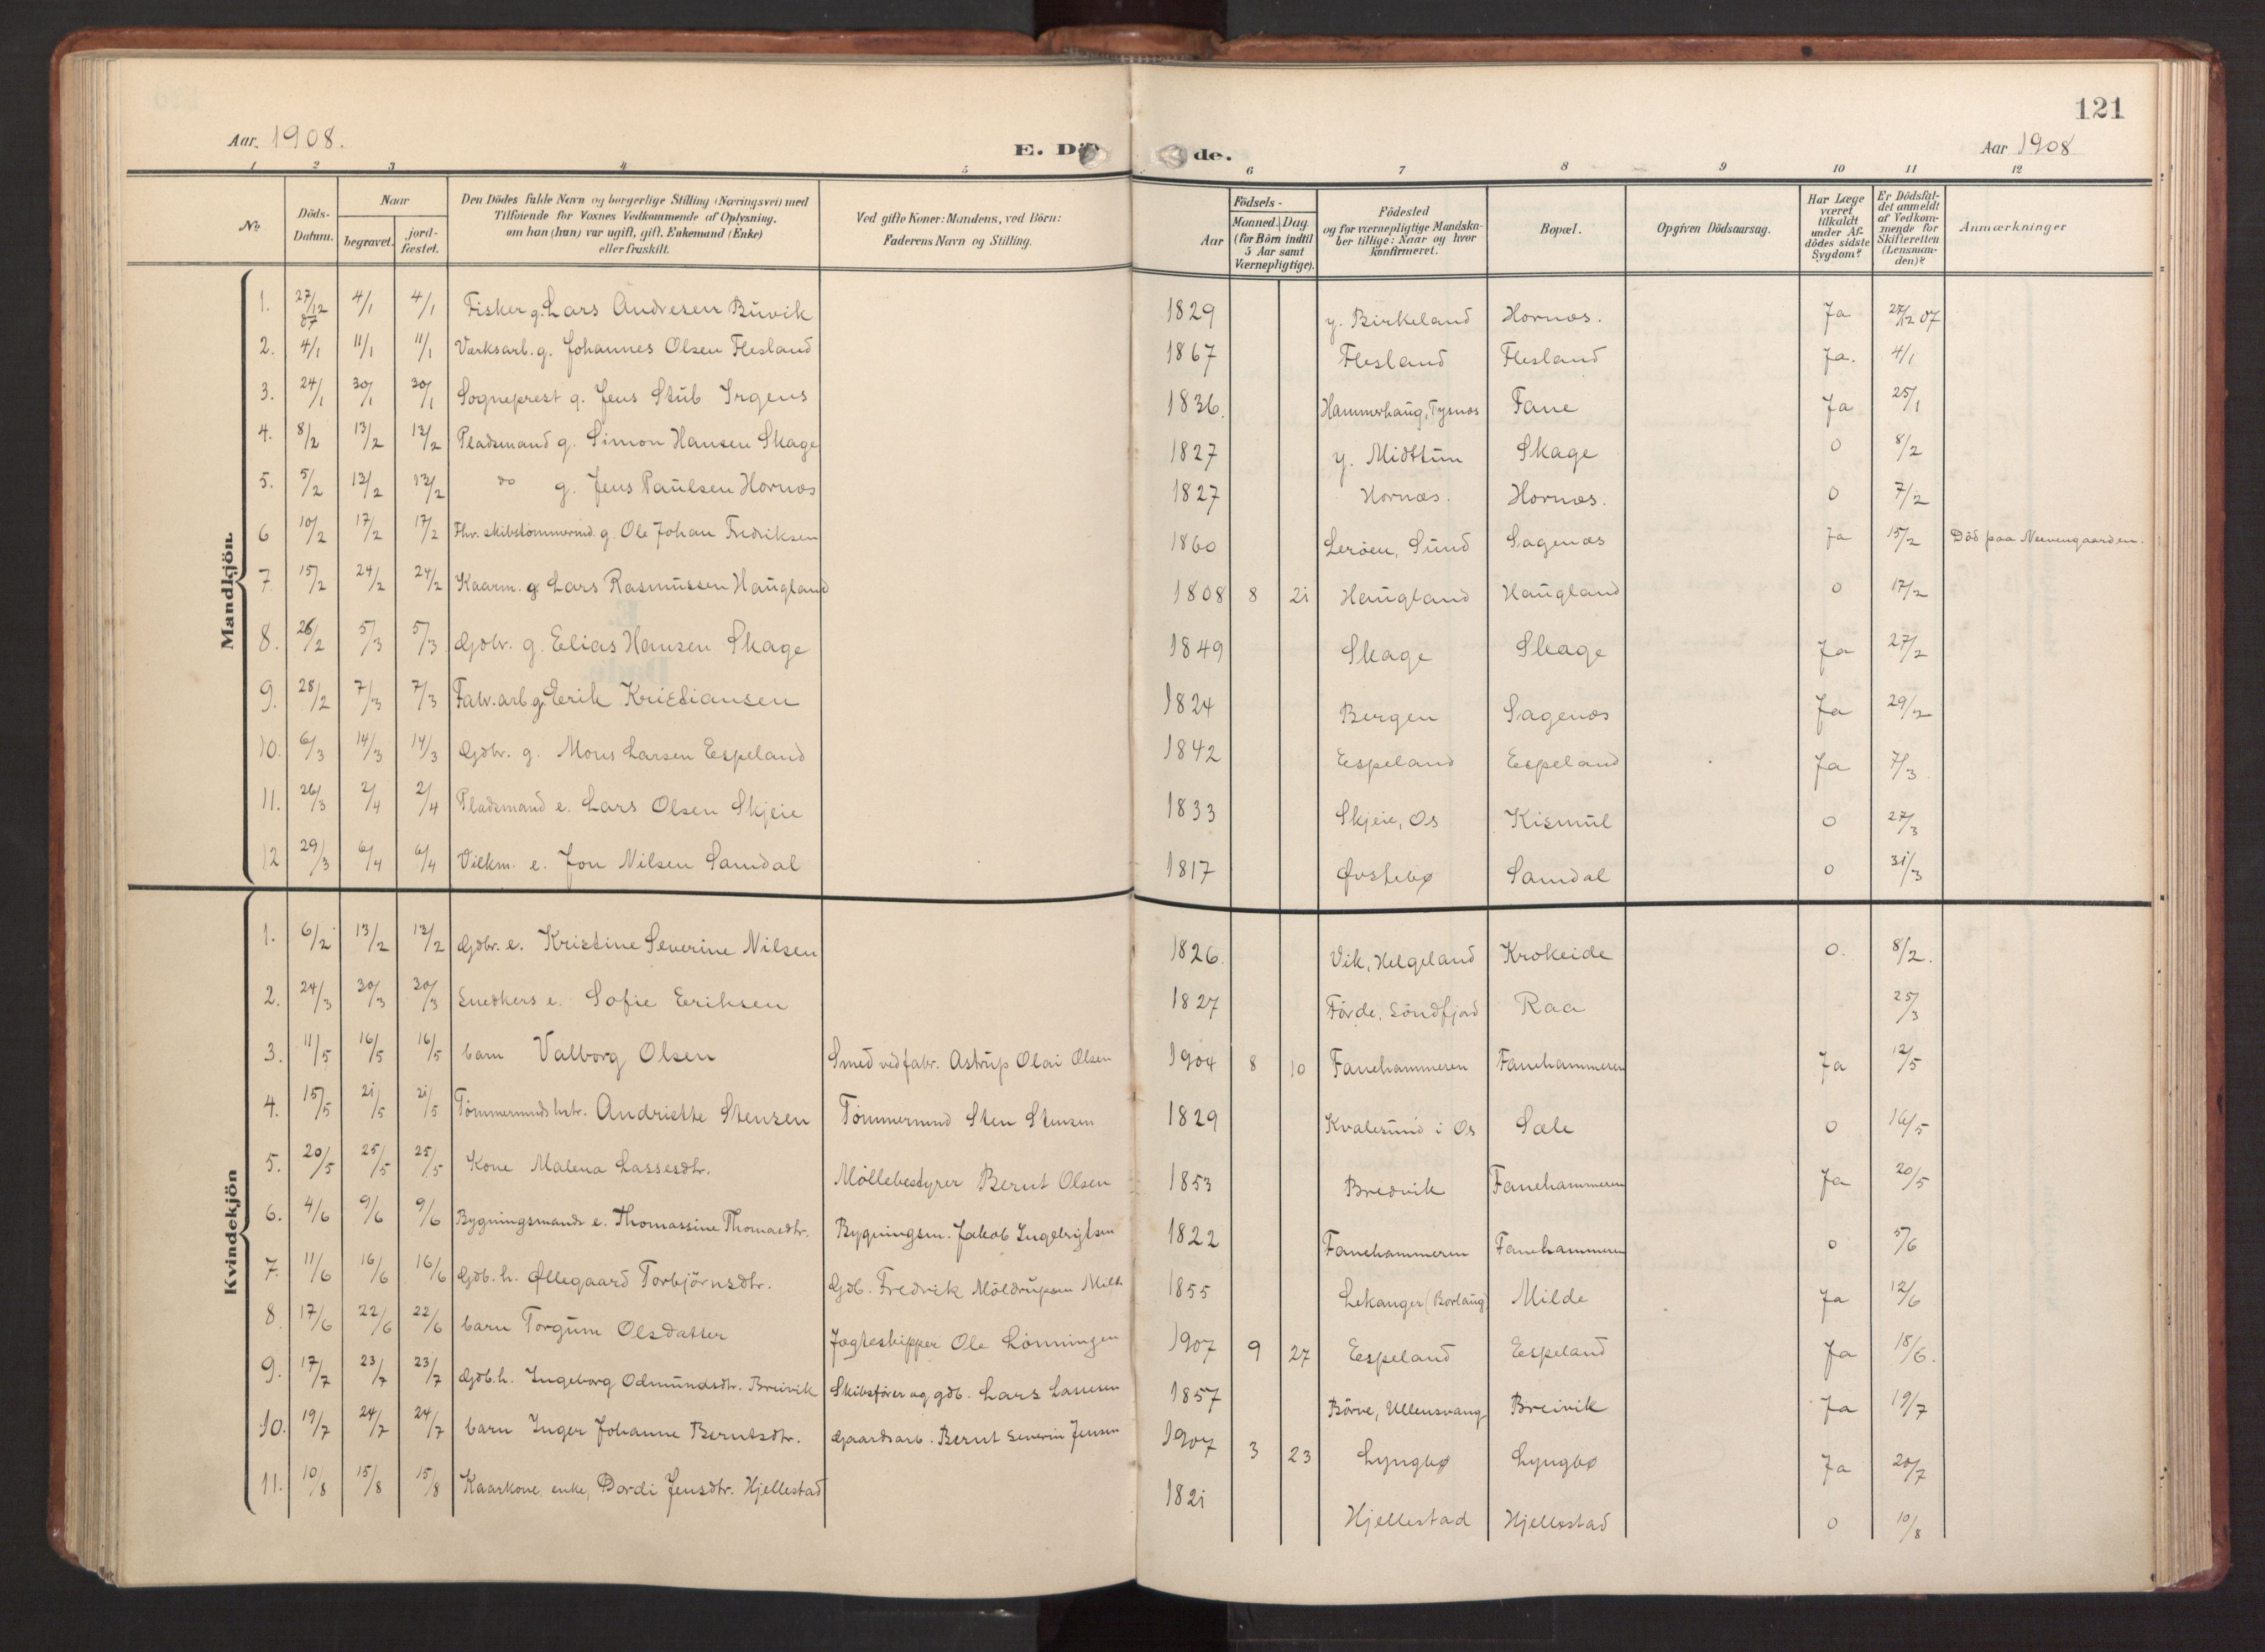 121
Aar. 1908.
E. Dö
de.
Aar 1908
1 2 3 4 5 6 7 8 9 10 11 12
No.
Döds-Datum.
Naar
begravet.
jord-fæstet.
Den Dödes fulde Navn og borgerlige Stilling (Næringsvei) med
Tilföiende for Voxnes Vedkommende af Oplysning.
om han (hun) var ugift, gift, Enkemand (Enke)
eller fraskilt.
Ved gifte Koner: Mandens, ved Börn:
Faderens Navn og Stilling.
Födsels-
Aar
Maaned. Dag.
(for Börn indtil
5 Aar samt
Værnepligtige).
Födested
og for værnepligtige Mandska-
ber tillige: Naar og hvor
konfirmeret.
Bopæl.
Opgiven Dödsaarsag.
Har Læge
været
tilkaldt
under Af-
dödes sidste
Sygdom?
Er Dödsfal-
det anmeldt
af Vedkom-
mende for
Skifteretten
(Lensman-
den)?
Anmærkninger
Mandkjön.
1. 27/12 07 4/1 4/1 Fisker g. Lars Andresen Buvik 1829 y. Birkeland Hornæs. Ja 27/12 07
2. 4/1 11/1 11/1 Værksarb. g. Johannes Olsen Flesland 1867 Flesland Flesland Ja. 4/1
3. 24/1 30/1 30/1 Sogneprest g. Jens Stub Irgens 1836. Hammerhaug, Tysnæs Fane Ja 25/1
4. 8/2 13/2 13/2 Pladsmand g. Simon Hansen Skage 1827 y. Midttun Skage 0 8/2
5. 5/2 13/2 13/2 do g. Jens Paulsen Hornæs 1827 Hornæs. Hornæs. 0 7/2
6 10/2 17/2 17/2 Fhv. skibstömmermd. g. Ole Johan Fredriksen 1860 Leröen, Sund Sagenæs Ja 15/2 Död paa Neevengaarden.
7. 15/2 24/2 24/2 Kaarm. g. Lars Rasmussen Haugland 1808 8 21 Haugland Haugland 0 17/2
8. 26/2 5/3 5/3 Gdbr. g. Elias Hansen Skage 1849 Skage Skage Ja 27/2
9. 28/2 7/3 7/3 Fabr. arb. g. Eerik Kristiansen 1824 Bergen Sagenæs Ja 29/2
10. 6/3 14/3 14/3 Gdbr. g. Mons Larsen Espeland 1842 Espeland Espeland Ja 7/3
11. 26/3 2/4 2/4 Pladsmand e. Lars Olsen Skjeie 1833 Skjeie, Os Kismul 0 27/3
12 29/3 6/4 6/4 Vilkm. e. Jon Nilsen Samdal 1817 Øvstebø Samdal 0 31/3
Kvindekjön
1. 6/2 13/2 13/2 Gdbr. e. Kristine Severine Nilsen 1826. Vik, Helgeland Krokeide 0. 8/2.
2. 24/3 30/3 30/3 Snedkers e. Sofie Eriksen 1827 Förde, Söndfjord Raa 25/3
3. 11/5 16/5 16/5 barn Valborg Olsen Smed ved fabr. Astrup Olai Olsen 1904 8 10 Fanehammeren Fanehammeren Ja 12/5
4. 15/5 21/5 21/5 Tömmermands hstr. Andriette Stensen Tömmermnd Sten Stensen 1829 Kvalesund i Os Sæle 0 16/5
5. 20/5 25/5 25/5 Kone Malena Lassesdtr. Möllebestyrer Bernt Olsen 1853 Bredvik Fanehammeren Ja 20/5
6. 4/6 9/6 9/6 Bygningsmands e. Thomassine Thomasdtr. Bygningsm. Jakob Ingebrigtsen 1822 Fanehammeren Fanehammeren 0 5/6
7. 11/6 16/6 16/6 Gdb. h. Øllegaard Torbjörnsdtr. Gdb. Fredrik Möldrupsen Milde 1855 Lekanger (Borlaug) Milde Ja 12/6
8. 17/6 22/6 22/6 barn Torgunn Olsdatter Jagteskipper Ole Lönningen 1907 9 27 Espeland Espeland Ja 18/6.
9. 17/7 23/7 23/7 Gdb. h. Ingeborg Odmundsdtr. Breivik Skibsförer og gdb. Lars Larsen 1857 Börve, Ullensvang Breivik Ja 19/7
10. 19/7 24/7 24/7 barn Inger Johanne Berntsdtr. Gaardsarb. Bernt Severin Jensen 1907 3 23 Lyngbø Lyngbø Ja 20/7
11. 10/8 15/8 15/8 Kaarkone, enke, Dordi Jensdtr. Hjellestad 1821 Hjellestad Hjellestad 0 10/8